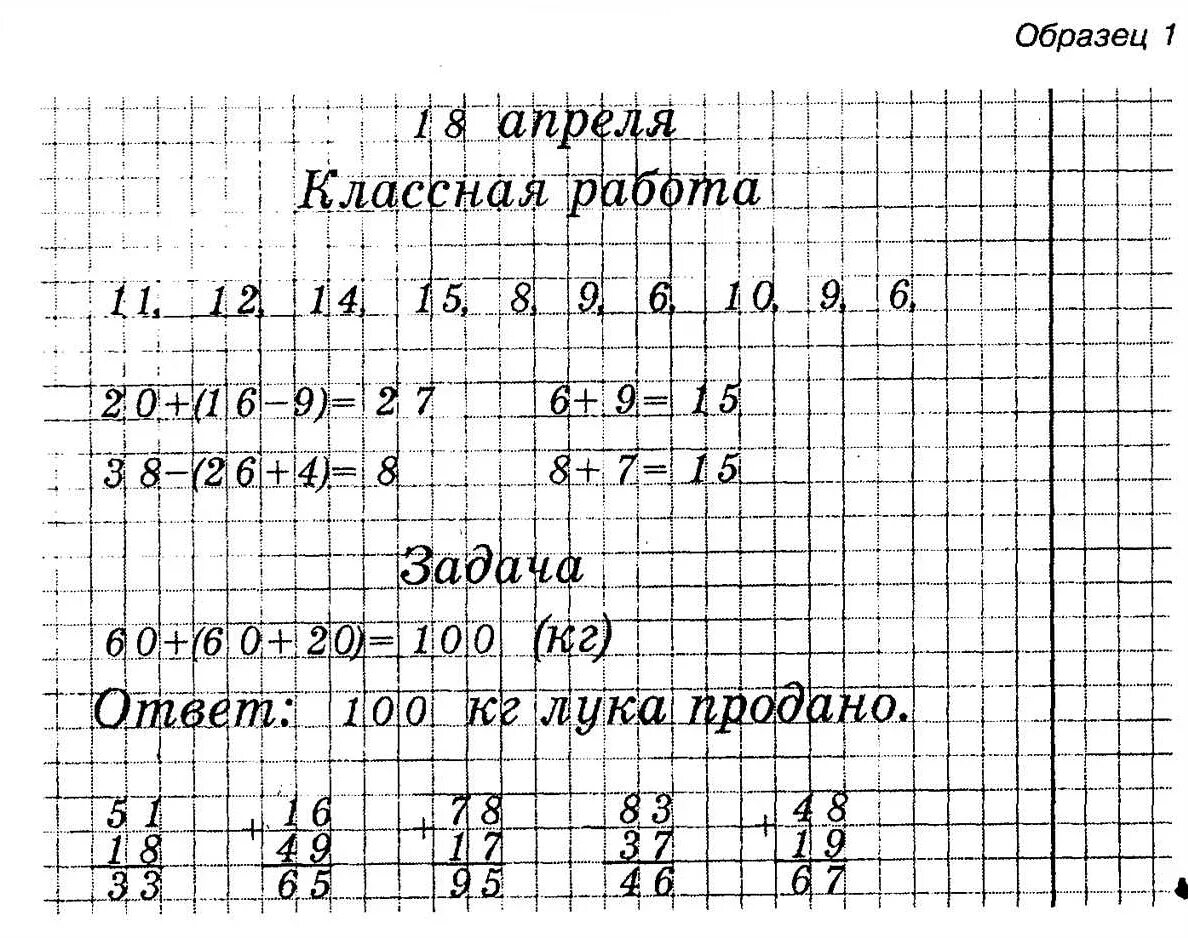 Образец 1
18 апреля
Классная работа
11, 12, 14, 15, 8, 9, 6, 10, 9, 6,
20+(16-9)= 27 6+9= 15
38-(26+4)= 8 8+7= 15
Задача
60+(60+20)= 100 (кг)
Ответ: 100 кг лука продано.
51 + 16 + 78 83 + 48
18 49 17 37 19
33 65 95 46 67